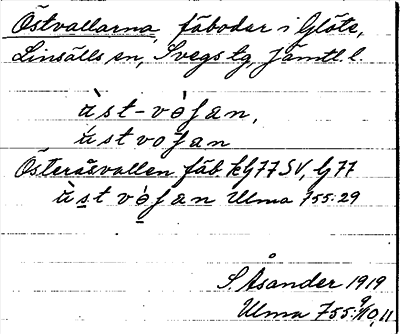 Östvallarna, fäbodar i Glöte,
Linsälls sn, Svegs tg, Jämtl. l.
ùst-vòʃan,
ùstvoʃan
Österåsvallen fäb. kG77SV, G77
ùst vòʃan Ulma 755:29
S Åsander 1919
Ulma 755:9/10,11